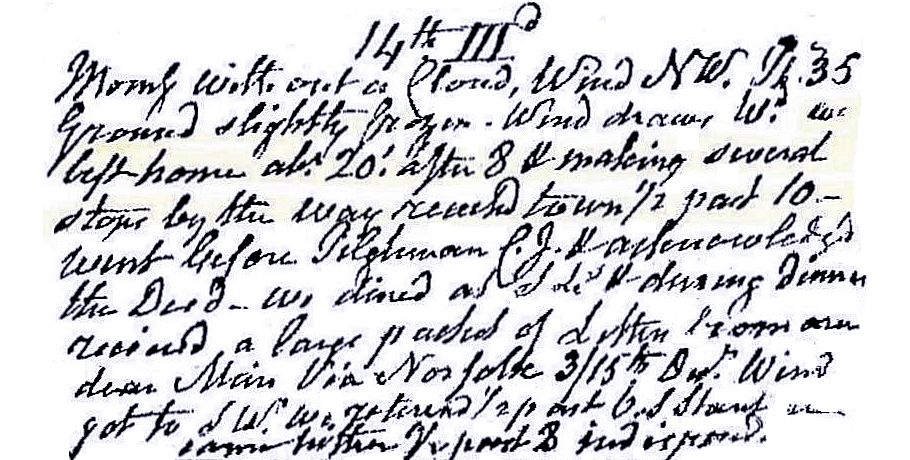 14th III d
Morng without a Cloud, Wind NW. Th. 35
Ground slightly frozen. Wind draws Wd. we
left home abt. 20' after 8 & making several
stops by the way reached town ½ past 10 -
went before Tilghman C. J. & acknowledg'd
the Deed - we dined at & during dinner
received a large packet of Letters from our
dear via Norfolk 3/15th Wind
got to S Wd. we return'd ½ past 6. S
came hither ½ past 8 indispond.